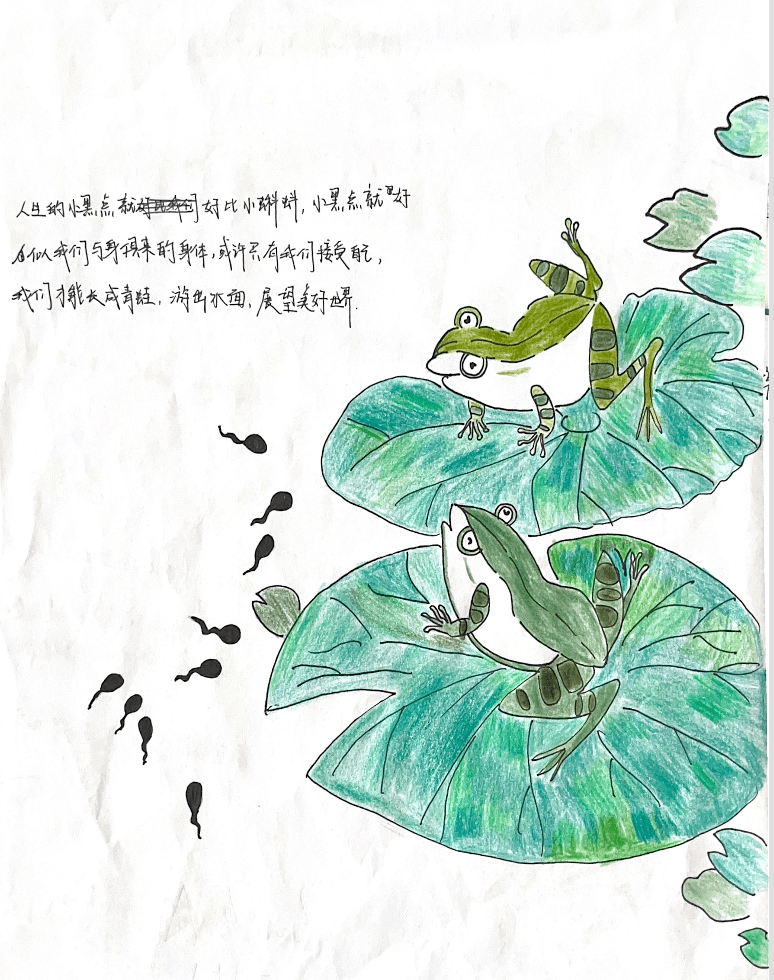 人生的小黑点就好比小蝌蚪，小黑点就好
似我们与身俱来的身体，或许只有我们接受自己，
我们才能长成青蛙，游出水面，展望美好世界.